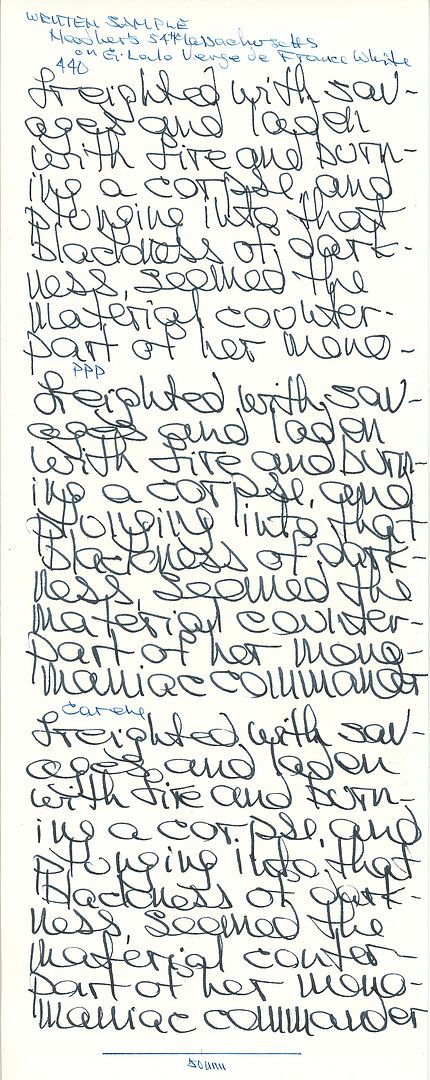 WRITTEN SAMPLE
Noodler's 54th Massachusetts
on G. Lalo Verge de France White
440
freighted with sav-
ages and laden
with fire and burn-
ing a corpse, and
plunging into that
blackness of dark-
ness, seemed the
material counter-
part of her mono-
PPP
freighted with sav-
ages and laden
with fire and burn-
ing a corpse, and
plunging into that
blackness of dark-
ness, seemed the
material counter-
part of her mono-
maniac commander
Carene
freighted with sav-
ages and laden
with fire and burn-
ing a corpse, and
plunging into that
blackness of dark-
ness, seemed the
material conter-
part of her mono-
maniac commander
50mm